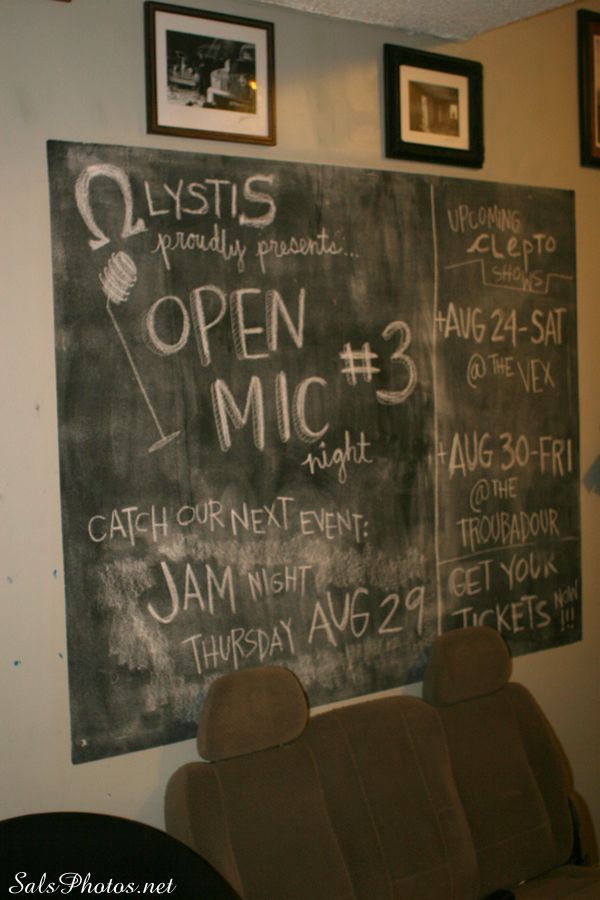 ΩLYSTIS
proudly presents...
OPEN
MIC #3
night
CATCH OUR NEXT EVENT:
JAM NIGHT
THURSDAY AUG 29
UPCOMING
CLEPTO
SHOWS
+AUG 24-SAT
@ THE VEX
+AUG 30-FRI
@ THE
TROUBADOUR
GET YOUR
TICKETS NOW!!!
SalsPhotos.net